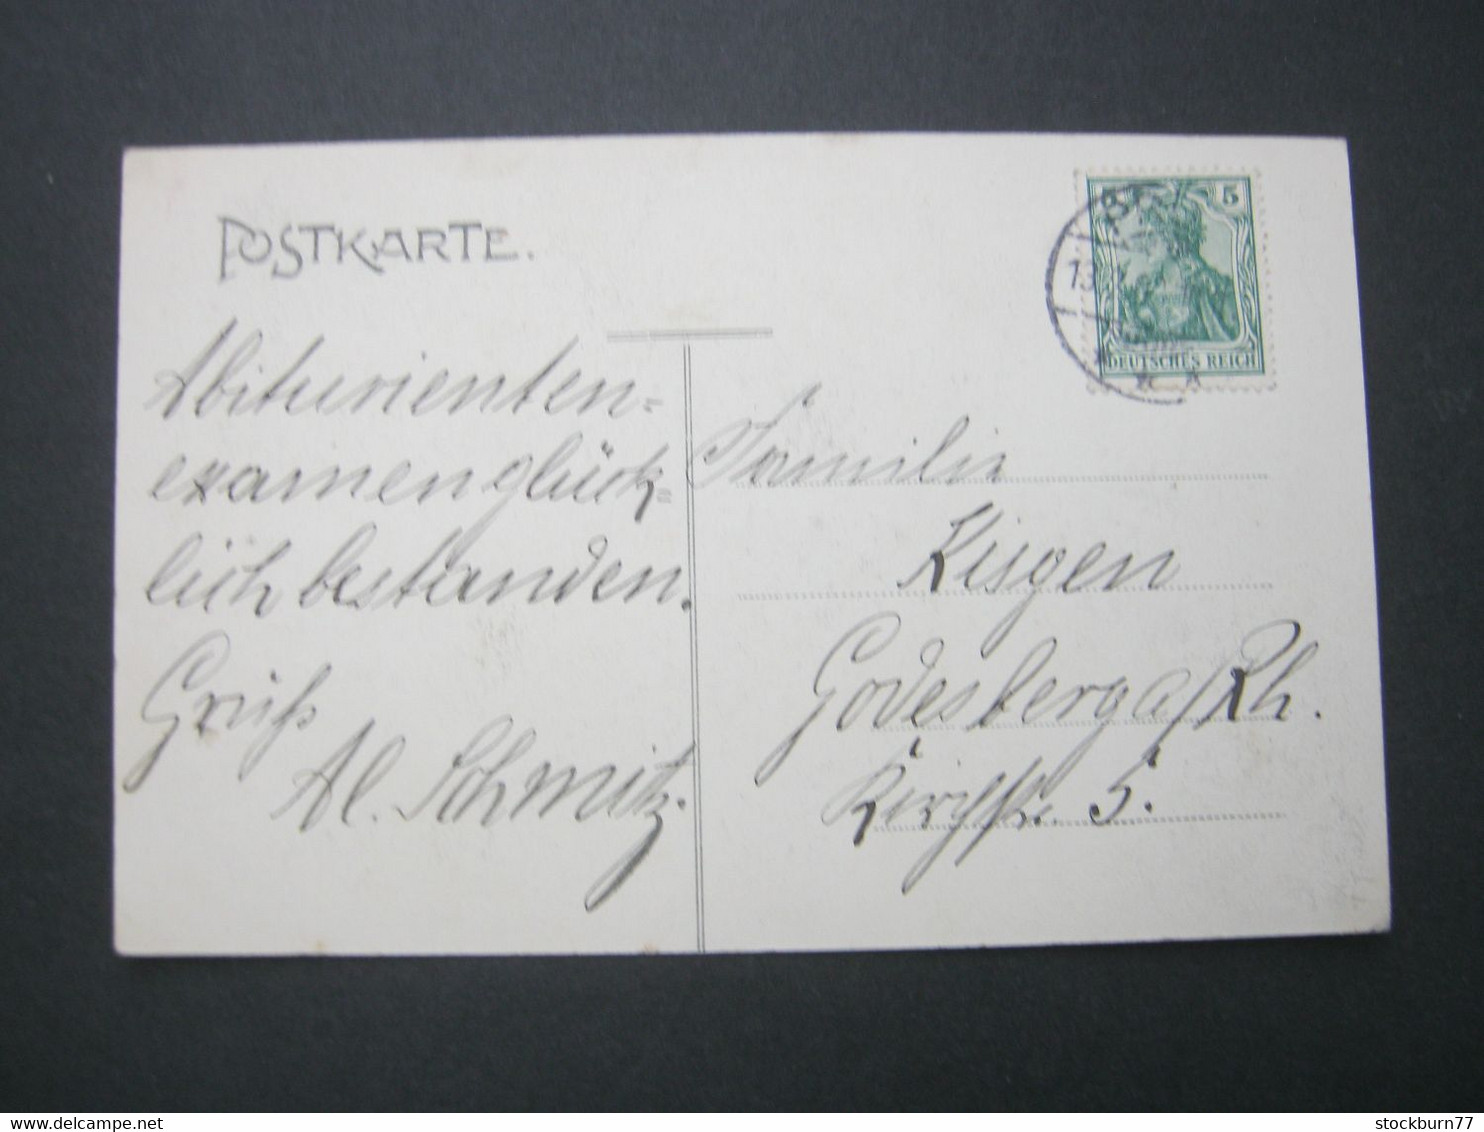 POSTKARTE.
5
DEUTSCHES REICH
13
Abiturienten=
examen glück=
lich bestanden.
Gruß
Al. Schmitz.
Familie
Kisgen
Godesberg a/Rh.
Kirchstr. 5.
delcampe.net
stockburn77